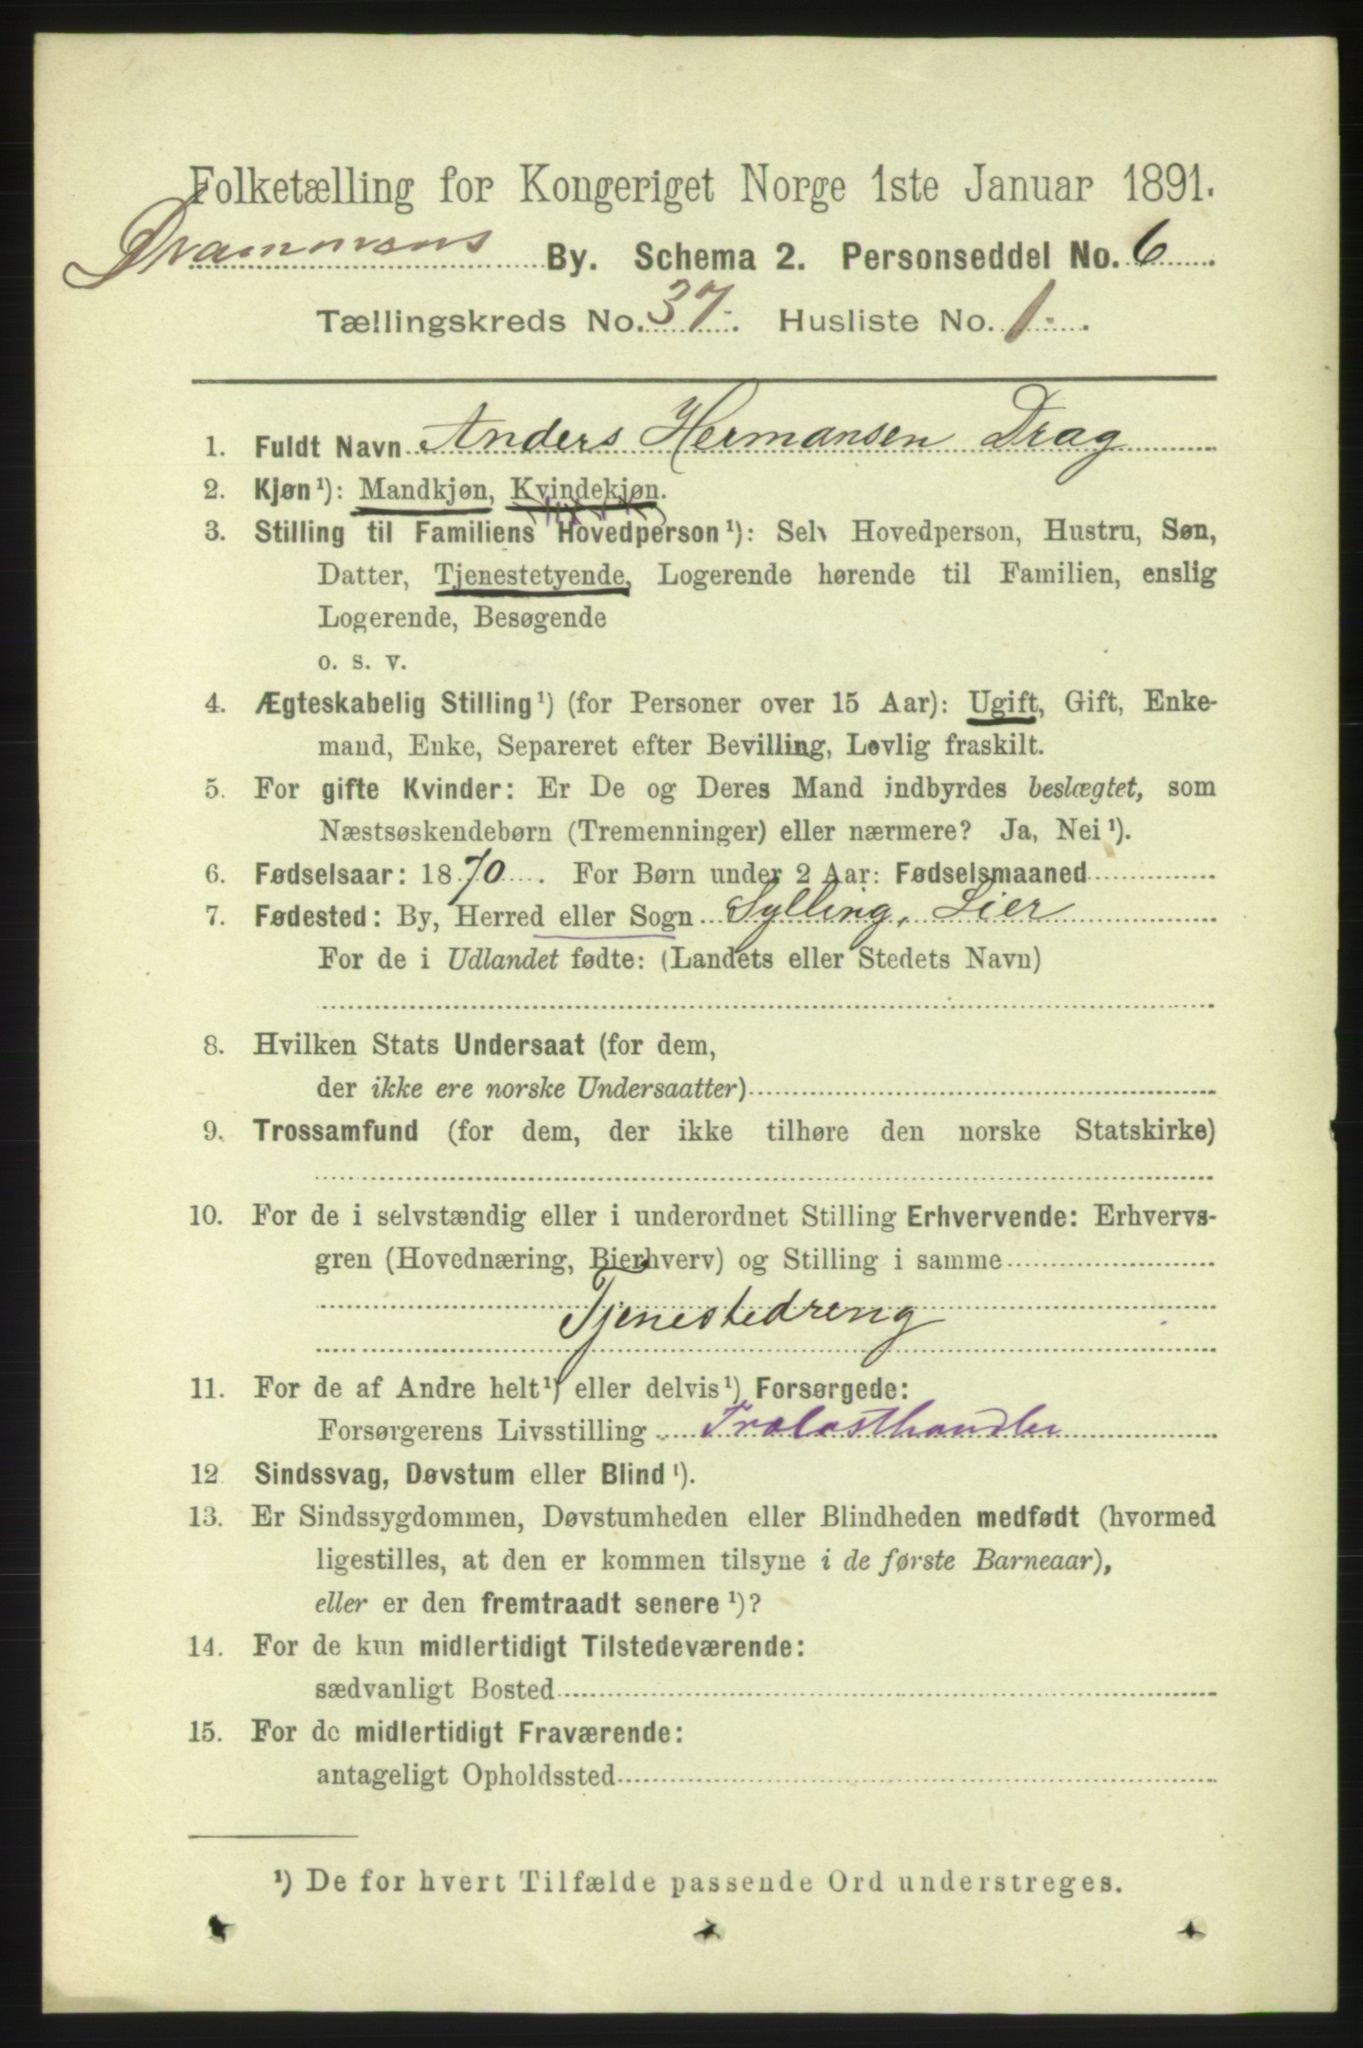 Folketælling for Kongeriget Norge 1ste Januar 1891.
Drammens By. Schema 2. Personseddel No. 6
Tællingskreds No. 37. Husliste No. 1.
1. Fuldt Navn Anders Hermansen Drag
2. Kjøn¹): Mandkjøn, Kvindekjøn.
3. Stilling til Familiens Hovedperson¹): Selv Hovedperson, Hustru, Søn,
Datter, Tjenestetyende, Logerende hørende til Familien, enslig
Logerende, Besøgende
o. s. v.
4. Ægteskabelig Stilling¹) (for Personer over 15 Aar): Ugift, Gift, Enke-
mand, Enke, Separeret efter Bevilling, Lovlig fraskilt.
5. For gifte Kvinder: Er De og Deres Mand indbyrdes beslægtet, som
Næstsøskendebørn (Tremenninger) eller nærmere? Ja, Nei¹).
6. Fødselsaar: 1870. For Børn under 2 Aar: Fødselsmaaned
7. Fødested: By, Herred eller Sogn Sylling, Lier
For de i Udlandet fødte: (Landets eller Stedets Navn)
8. Hvilken Stats Undersaat (for dem,
der ikke ere norske Undersaatter)
9. Trossamfund (for dem, der ikke tilhøre den norske Statskirke)
10. For de i selvstændig eller i underordnet Stilling Erhvervende: Erhvervs-
gren (Hovednæring, Bierhverv) og Stilling i samme
Tjenestedreng
11. For de af Andre helt¹) eller delvis¹) Forsørgede:
Forsørgerens Livsstilling Trælasthandler
12. Sindssvag, Døvstum eller Blind¹).
13. Er Sindssygdommen, Døvstumheden eller Blindheden medfødt (hvormed
ligestilles, at den er kommen tilsyne i de første Barneaar),
eller er den fremtraadt senere¹)?
14. For de kun midlertidigt Tilstedeværende:
sædvanligt Bosted
15. For de midlertidigt Fraværende:
antageligt Opholdssted
¹) De for hvert Tilfælde passende Ord understreges.